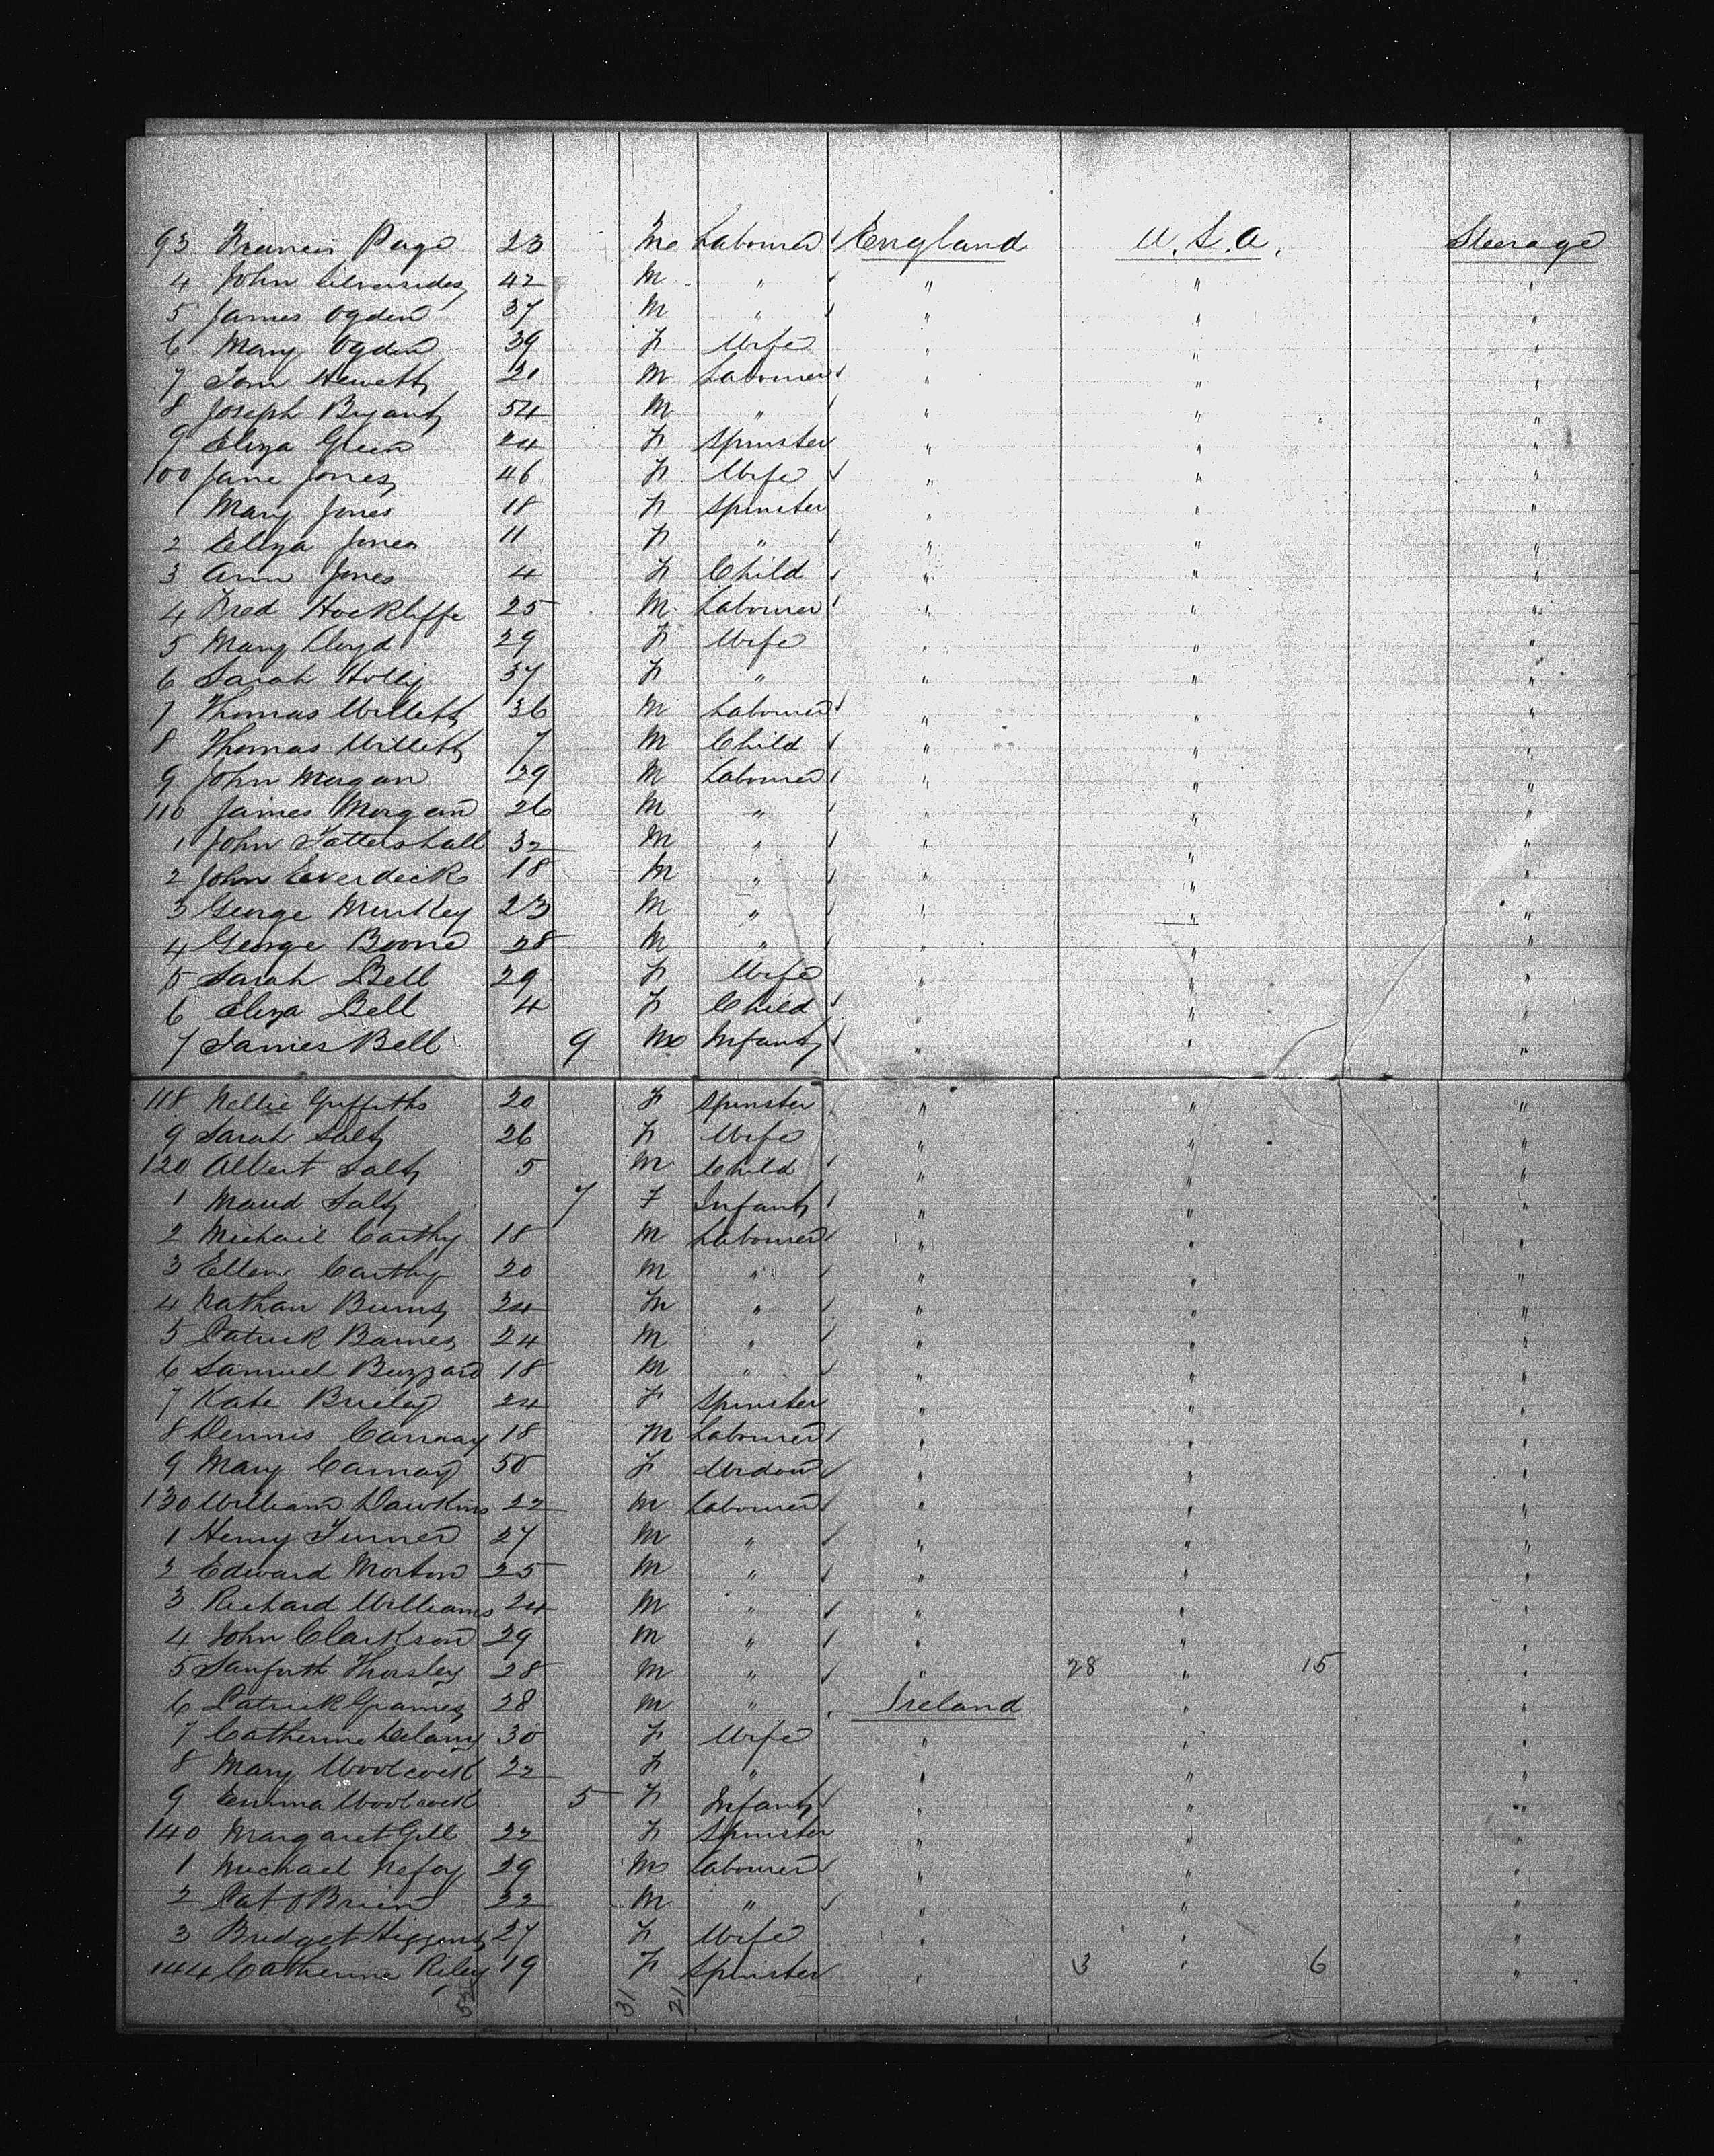 93 Francis Page 23 M Labourer England U.S.A. Steerage
4 John Silversides 42 M " " " "
5 James Ogden 37 M " " " "
6 Mary Ogden 39 F Wife " " "
7 Tom Hewett 21 M Labourer " " "
8 Joseph Bryant 54 M " " " "
9 Eliza Green 24 F Spinster " " "
100 Jane Jones 46 F Wife " " "
1 Mary Jones 18 F Spinster " " "
2 Eliza Jones 11 F " " " "
3 Ann Jones 4 F Child " " "
4 Fred Hockliffe 25 M Labourer " " "
5 Mary Lloyd 29 F Wife " " "
6 Sarah Holly 37 F " " " "
7 Thomas Willett 36 M Labourer " " "
8 Thomas Willett 7 M Child " " "
9 John Morgan 29 M Labourer " " "
110 James Morgan 26 M " " " "
1 John Tattershall 32 M " " " "
2 John Everdick 18 M " " " "
3 George 23 M " " " "
4 George Boone 28 M " " " "
5 Sarah Bell 29 F Wife " " "
6 Eliza Bell 4 F Child " " "
7 James Bell 9 M Infant " " "
118 Nellie Griffiths 20 F Spinster " " "
9 Sarah Salt 26 F Wife " " "
120 Albert Salt 5 M Child " " "
1 Maud Salt 7 F Infant " " "
2 Michail Carthy 18 M Labourer " " "
3 Ellen Carthy 20 M " " " "
4 Nathan Burns 24 M " " " "
5 Patrick Barnes 24 M " " " "
6 Samuel Buzzard 18 M " " " "
7 Kate Briley 24 F Spinster " " "
8 Dennis Carnay 18 M Labourer " " "
9 Mary Carnay 50 F Widow " " "
130 William Dawkins 22 M Labourer " " "
1 Henry Turner 27 M " " " "
2 Edward Morton 25 M " " " "
3 Richard Williams 24 M " " " "
4 John Clarkson 29 M " " " "
5 Thorsley 28 M " " 28 " 15 "
6 Patrick 28 M " Ireland " "
7 Catherine Delany 30 F Wife " " "
8 Mary Woolcock 22 F " " " "
9 Emma Woolcock 5 F Infant " " "
140 Margaret Gill 22 F Spinster " " "
1 Michael Nefoy 29 M Labourer " " "
2 Pat O Brien 22 M " " " "
3 Bridget Higgins 27 F Wife " " "
144 Catherine Riley 19 F Spinster " 3 " 6 "
52 31 21